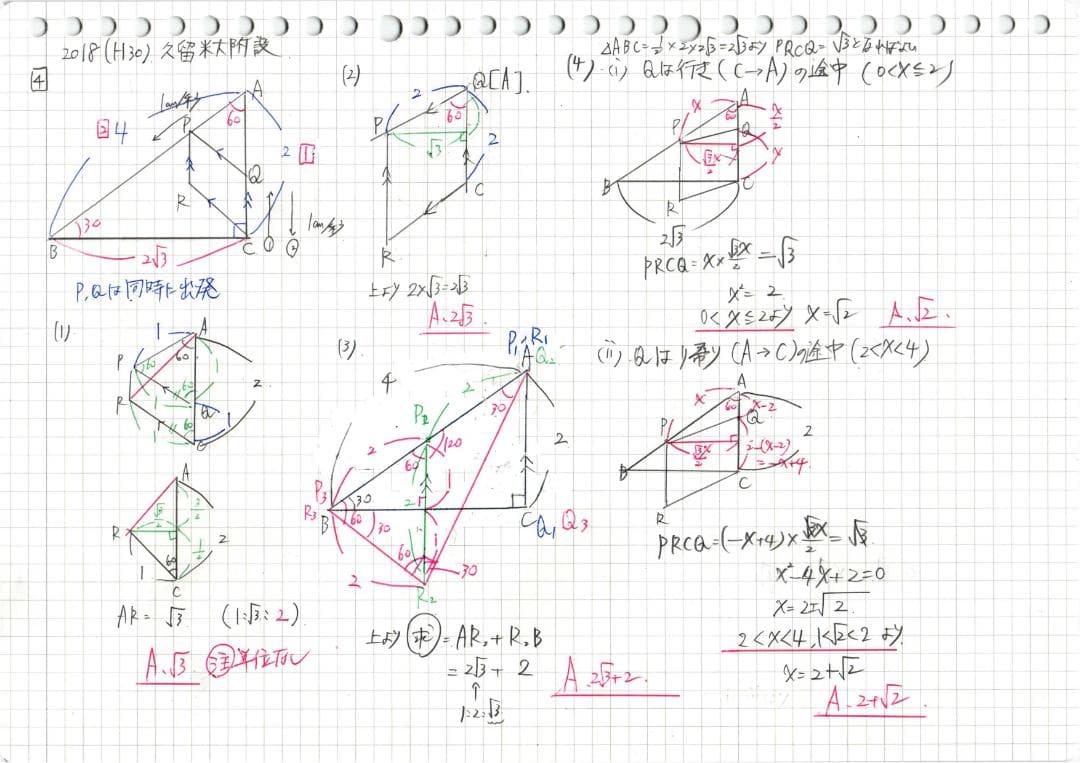 2018(H30)久留米大附設
4
1cm/秒
A
P
60
② 4
2 ①
Q
R
30
B
2√3
C
①
②
1cm/秒
P,Qは同時に出発
(1)
1
A
P
60
60
1
60
2
R
1
Q
1
60
1
C
A
√3/2
3/2
R
2
1/2
1
60
C
AR= √3 (1:√3:2)
A.√3 注単位なし
(2)
Q[A].
2
P
60
√3
2
C
R
上より 2×√3=2√3
A.2√3
(3)
P₁,R₁
A Q₂
4
2
30
P₂
2
60
120
2
P₃
R₃
B
30
60
30
2
1
C Q₁ Q₃
60
1
30
2
R₂
上より 求=AR₂+R₂B
=2√3+2
↑
1:2:√3
A.2√3+2.
△ABC=1/2×2×2√3=2√3より PRCQ=√3となればよい
(4)(i) Qは行き(C→A)の途中(0<x≦2)
A
x
60
x/2
P
Q
√3/2x
x
B
C
R
2√3
PRCQ=x×√3x/2=√3
x²=2
0<x≦2より x=√2 A.√2.
(ii) Qは帰り(A→C)の途中(2<x<4)
A
x
60
x-2
Q
P
√3x/2
2
2-(x-2)
=-x+4
B
C
R
PRCQ=(-x+4)×√3x/2=√3
x²-4x+2=0
x=2±√2
2<x<4,1<√2<2より
x=2+√2
A.2+√2